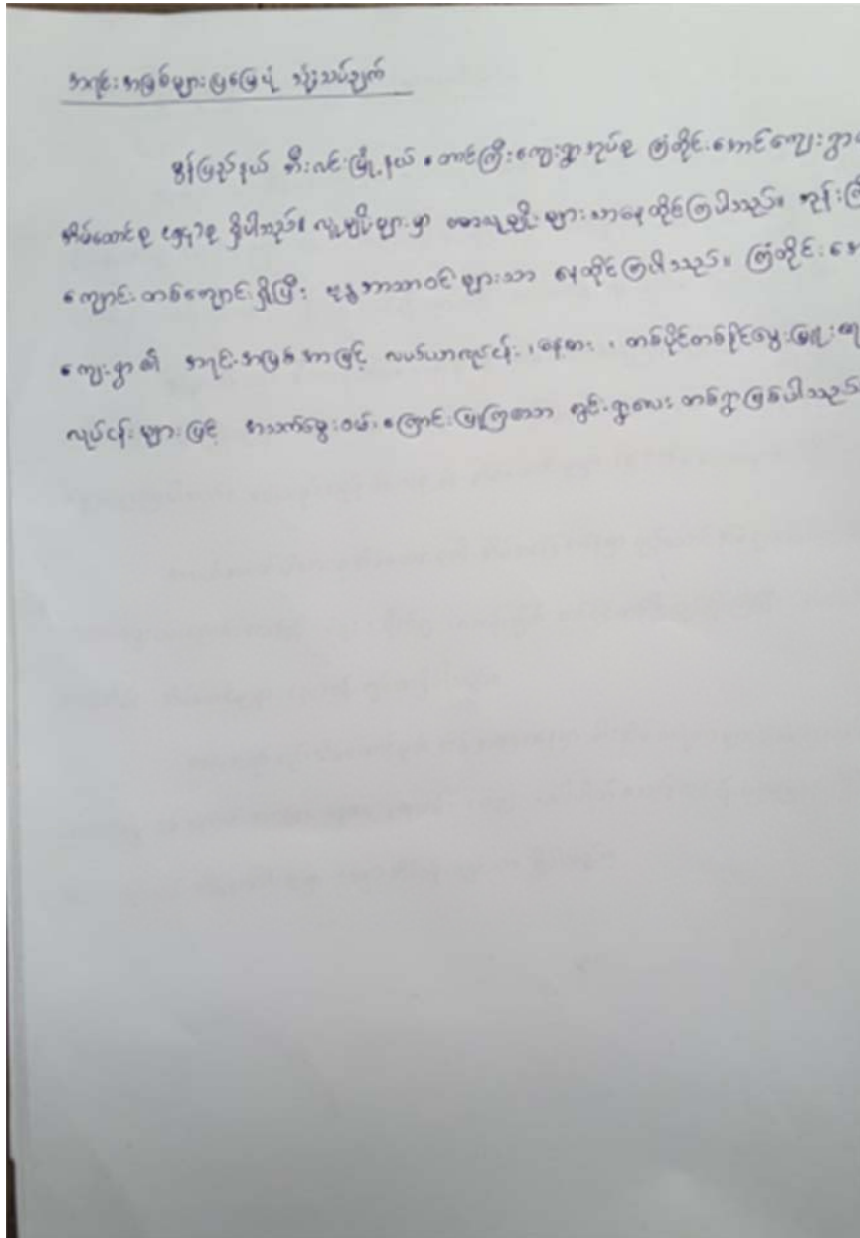 အရင်းအမြစ်များပြမြေပုံ သုံးသပ်ချက်
မွန်ပြည်နယ် ဘီးလင်းမြို့နယ် တောင်ကြီးကျေးရွာအုပ်စု ကြံတိုင်းအောင်ကျေးရွာ
အိမ်ထောင်စု ရှိပါသည်။ လူမျိုးများမှာ ဗမာလူမျိုးများသာနေထိုင်ကြပါသည်။ ဘုန်းကြီး
ကျောင်းတစ်ကျောင်းရှိပြီး ဗုဒ္ဓဘာသာဝင်များသာ နေထိုင်ကြပါသည်။ ကြံတိုင်းအော
ကျေးရွာ၏ အရင်းအမြစ်အားဖြင့် လယ်ယာလုပ်ငန်း ၊ နေ့စား ၊ တစ်ပိုင်တစ်နိုင်မွေးမြူရေး
လုပ်ငန်းများဖြင့် အသက်မွေးဝမ်းကြောင်းပြုကြသော ရွာလေး တစ်ရွာဖြစ်ပါသည်